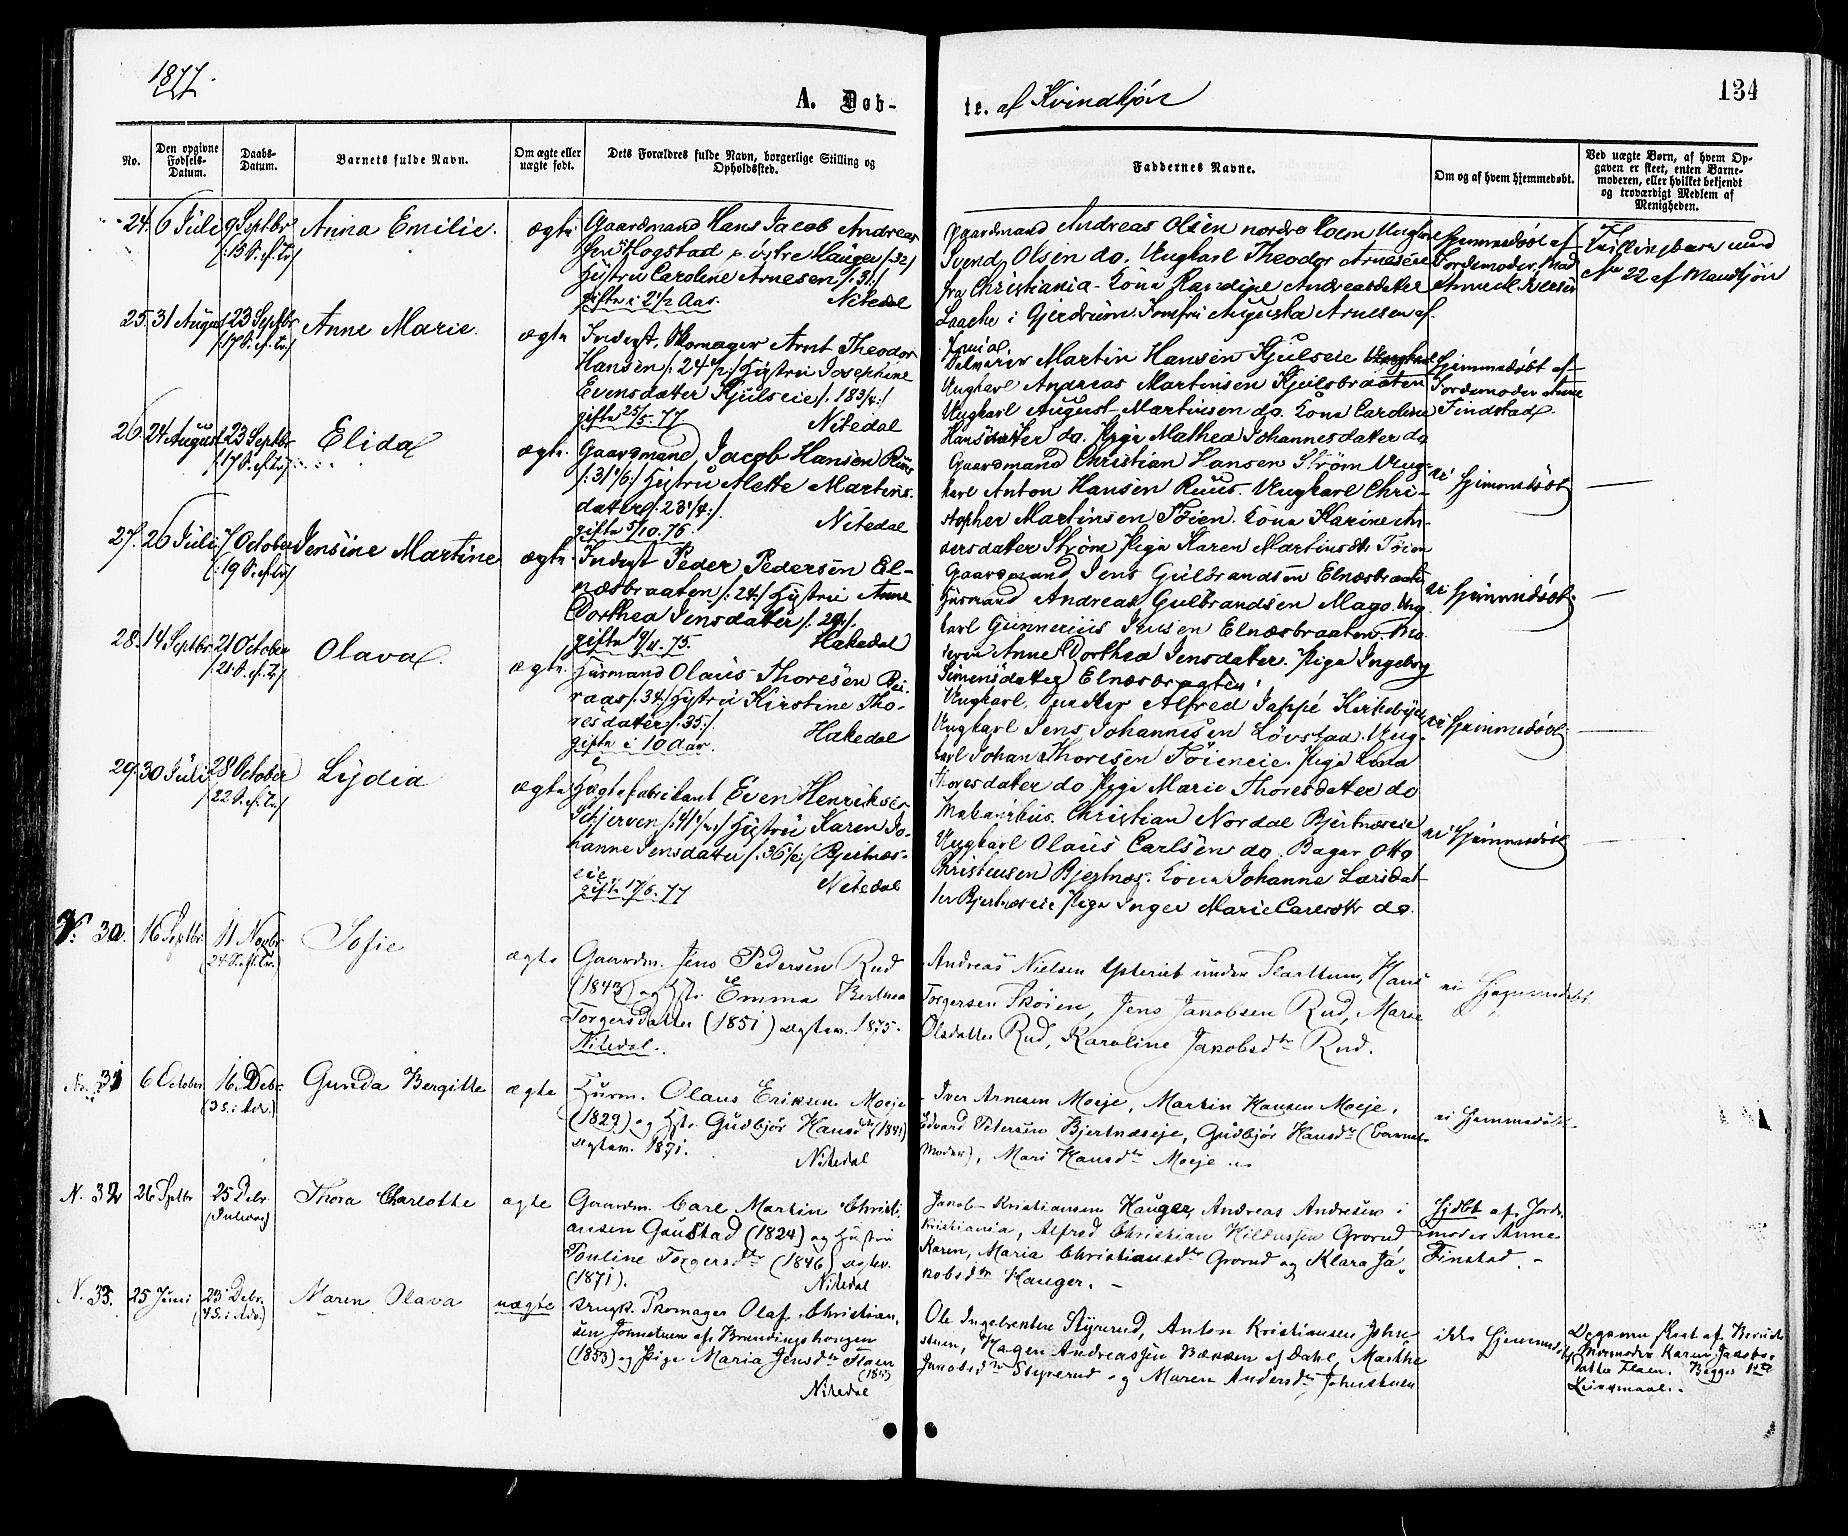 1877.
A. Døb-
te. af Kvindkjön
134
No.
Den opgivne Fødsels-Datum.
Daabs-Datum.
Barnets fulde Navn.
Om ægte eller uægte født.
Dets Forældres fulde Navn, borgerlige Stilling og Opholdssted.
Faddernes Navne.
Om og af hvem hjemmedøbt.
Ved uægte Børn, af hvem Opgaven er skeet, enten Barnemoderen, eller hvilket bekjendt og troværdigt Medlem af Menigheden.
24. 6 Juli 9 Septbr /:15 S. ef. Tr/ Anna Emilie. ægte
Gaardmand Hans Jacob Andreas
sen Hogstad p. östre Haugen /:32/
Hustru Caroline Arnesen /:31:/
gifte i 2½ Aar. Nitedal
Gaardmand Andreas Olsen nordre Holm Ungkarl
Svend Olsen do. Ungkarl Theodor Arnesen
fra Christiania - Kona Randine Andreasdatter
Laache i Gjerdrum Jomfru Augusta Arnesen af
Hjemmedöbt af
Jordemoder Mad
Tvillingbarn med
No 22 af Mandkjön
25. 31 August 23 Septbr /:17 S. ef. Tr/ Anne Marie. ægte
Inderst, Skomager Arnt Theodor
Hansen /:24½:/ Hustru Josephine
Evensdatter Kjulseie /:18¾:/
gifte 25/5.77 Nitedal
Martin Hansen Kjulseie
Ungkarl Andreas Martinsen Kjulsbraaten
Ungkarl August Martinsen do. Kona Caroline
Hansdatter do. Pige Mathea Johannesdatter do
Hjemmedöbt af
Jordemoder Anne
Finstad.
26. 24 August 23 Septbr /:17 S. ef. Tr/ Elida ægte.
Gaardmand Jacob Hansen Ruus
/:31⅙:/ Hustru Mette Martins
datter /:23¼:/
gifte 5/10.76. Nitedal
Gaardmand Christian Hansen Ström Ung-
karl Anton Hansen Ruus. Ungkarl Chri-
stopher Martinsen Töien. Kona Karine An-
dersdatter Ström Pige Karen Martinsdtr Töien
ei Hjemmedöbt
27. 26 Juli 7 October /:19 S. ef. Tr/ Jensine Martine ægte
Inderst Peder Pedersen El-
næsbraaten /:24:/ Hustru Anne
Dorthea Jensdatter /:29/.
gifte 19/11.75. Hakedal
Gaardmand Jens Gulbrandsen Elnæsbraaten
Husmand Andreas Gulbrandsen Mago. Ung
karl Gunnerius Jensen Elnæsbraaten. Mo
deren Anne Dorthea Jensdatter. Pige Ingeborg
Simensdatter Elnæsbraaten.
ei Hjemmedöbt
28. 14 Septbr 21 October /:21 S. ef. Tr/ Olava. ægte.
Husmand Olaus Thoresen Bei-
raas /:34/ Hustru Kirstine Tho-
resdatter /:35:/
gifte i 10 Aar. Hakedal
Ungkarl, Alfred Jappé Kirkebyeie
Ungkarl Jens Johannesen Lövstad. Ung-
karl Johan Thoresen Töieneie. Pige Lona
Thoresdatter do Pige Marie Thoresdatter do
ei Hjemmedöbt
29. 30 Juli 28 October /:22 S. ef. Tr/ Lydia ægte
Hægtefabrikant Even Henriksen
Schjerven /:41½:/ Hustru Karen Jo-
hanne Jensdatter /:36½:/ Bjertnæs-
eie
gift 17/6.77 Nitedal
Mekanikus. Christian Nordal Bjertnæseie
Ungkarl Olaus Carlsen do. Bager Otto
Christensen Bjertnæs. Kona Johanne Larsdat-
ter Bjertnæseie Pige Inger Marie Carlsdtr do.
ei Hjemmedöbt
N. 30. 16 Septbr. 11 Novbr. (24 S. eft. Tr.) Sofie ægte
Gaardm. Jens Pedersen Rud
(1843) og Hstr. Emma Berthea
Torgersdatter (1851) ægtev. 1875.
Nitedal.
Andreas Nielsen under Flatttum, Hans
Torgersen Skøien, Jens Jakobsen Rud, Marie
Olsdatter Rud, Karoline Jakobsdtr Rud.
ei Hjemmedøbt
No. 31 6 October 16 Debr. (3 S. i Adv.) Gunda Bergitte ægte
Husm. Olaus Eriksen Moeje
(1829) og Hstr. Gudbjör Hansdtr (1841)
ægtev. 1871. Nitedal
Iver Arnesen Moeje, Martin Hansen Moeje,
Edvard Petersen Bjertnæseje, Gudbjör Hansdtr (Barnets
Moder), Mari Hansdtr Moeje
ei Hjemmedøbt
N. 32 26 Sptbr 25 Debr. (Juledag) Thora Charlotte ægte
Gaardm. Carl Martin Christi-
ansen Gaustad (1824) og Hustru
Pouline Torgersdtr (1846) ægtev.
(1871). Nitedal
Jacob Kristiansen Hauger, Andreas Andresen i
Kristiania, Alfred Christian Grorud
Karen, Maria Christiansdtr Grorud og Klara Ja-
kobsdtr Hauger. -
Hjdbt af Jorde
moder Anne
Finstad. -
N. 33. 25 Juni 23 Debr. (4 S. i Adv.) Maren Olava uægte
Ungk. Skomager Olaf Christian-
sen Johnstuen af Brændingshougen
(1853) og Pige Maria Jensdtr Flaen
Nitedal
Ole Ingebretsen Styrerud, Anton Kristiansen John-
stuen, Hagen Andreassen Bækken af Dahl, Marthe
Jacobsdtr Styrerud og Maren Andersdtr Johnstuen
ikke Hjemmed.
Opgaven skeet af
Karen Jakobs-
datter Flaen. Begges 1ste
Leiermaal. -